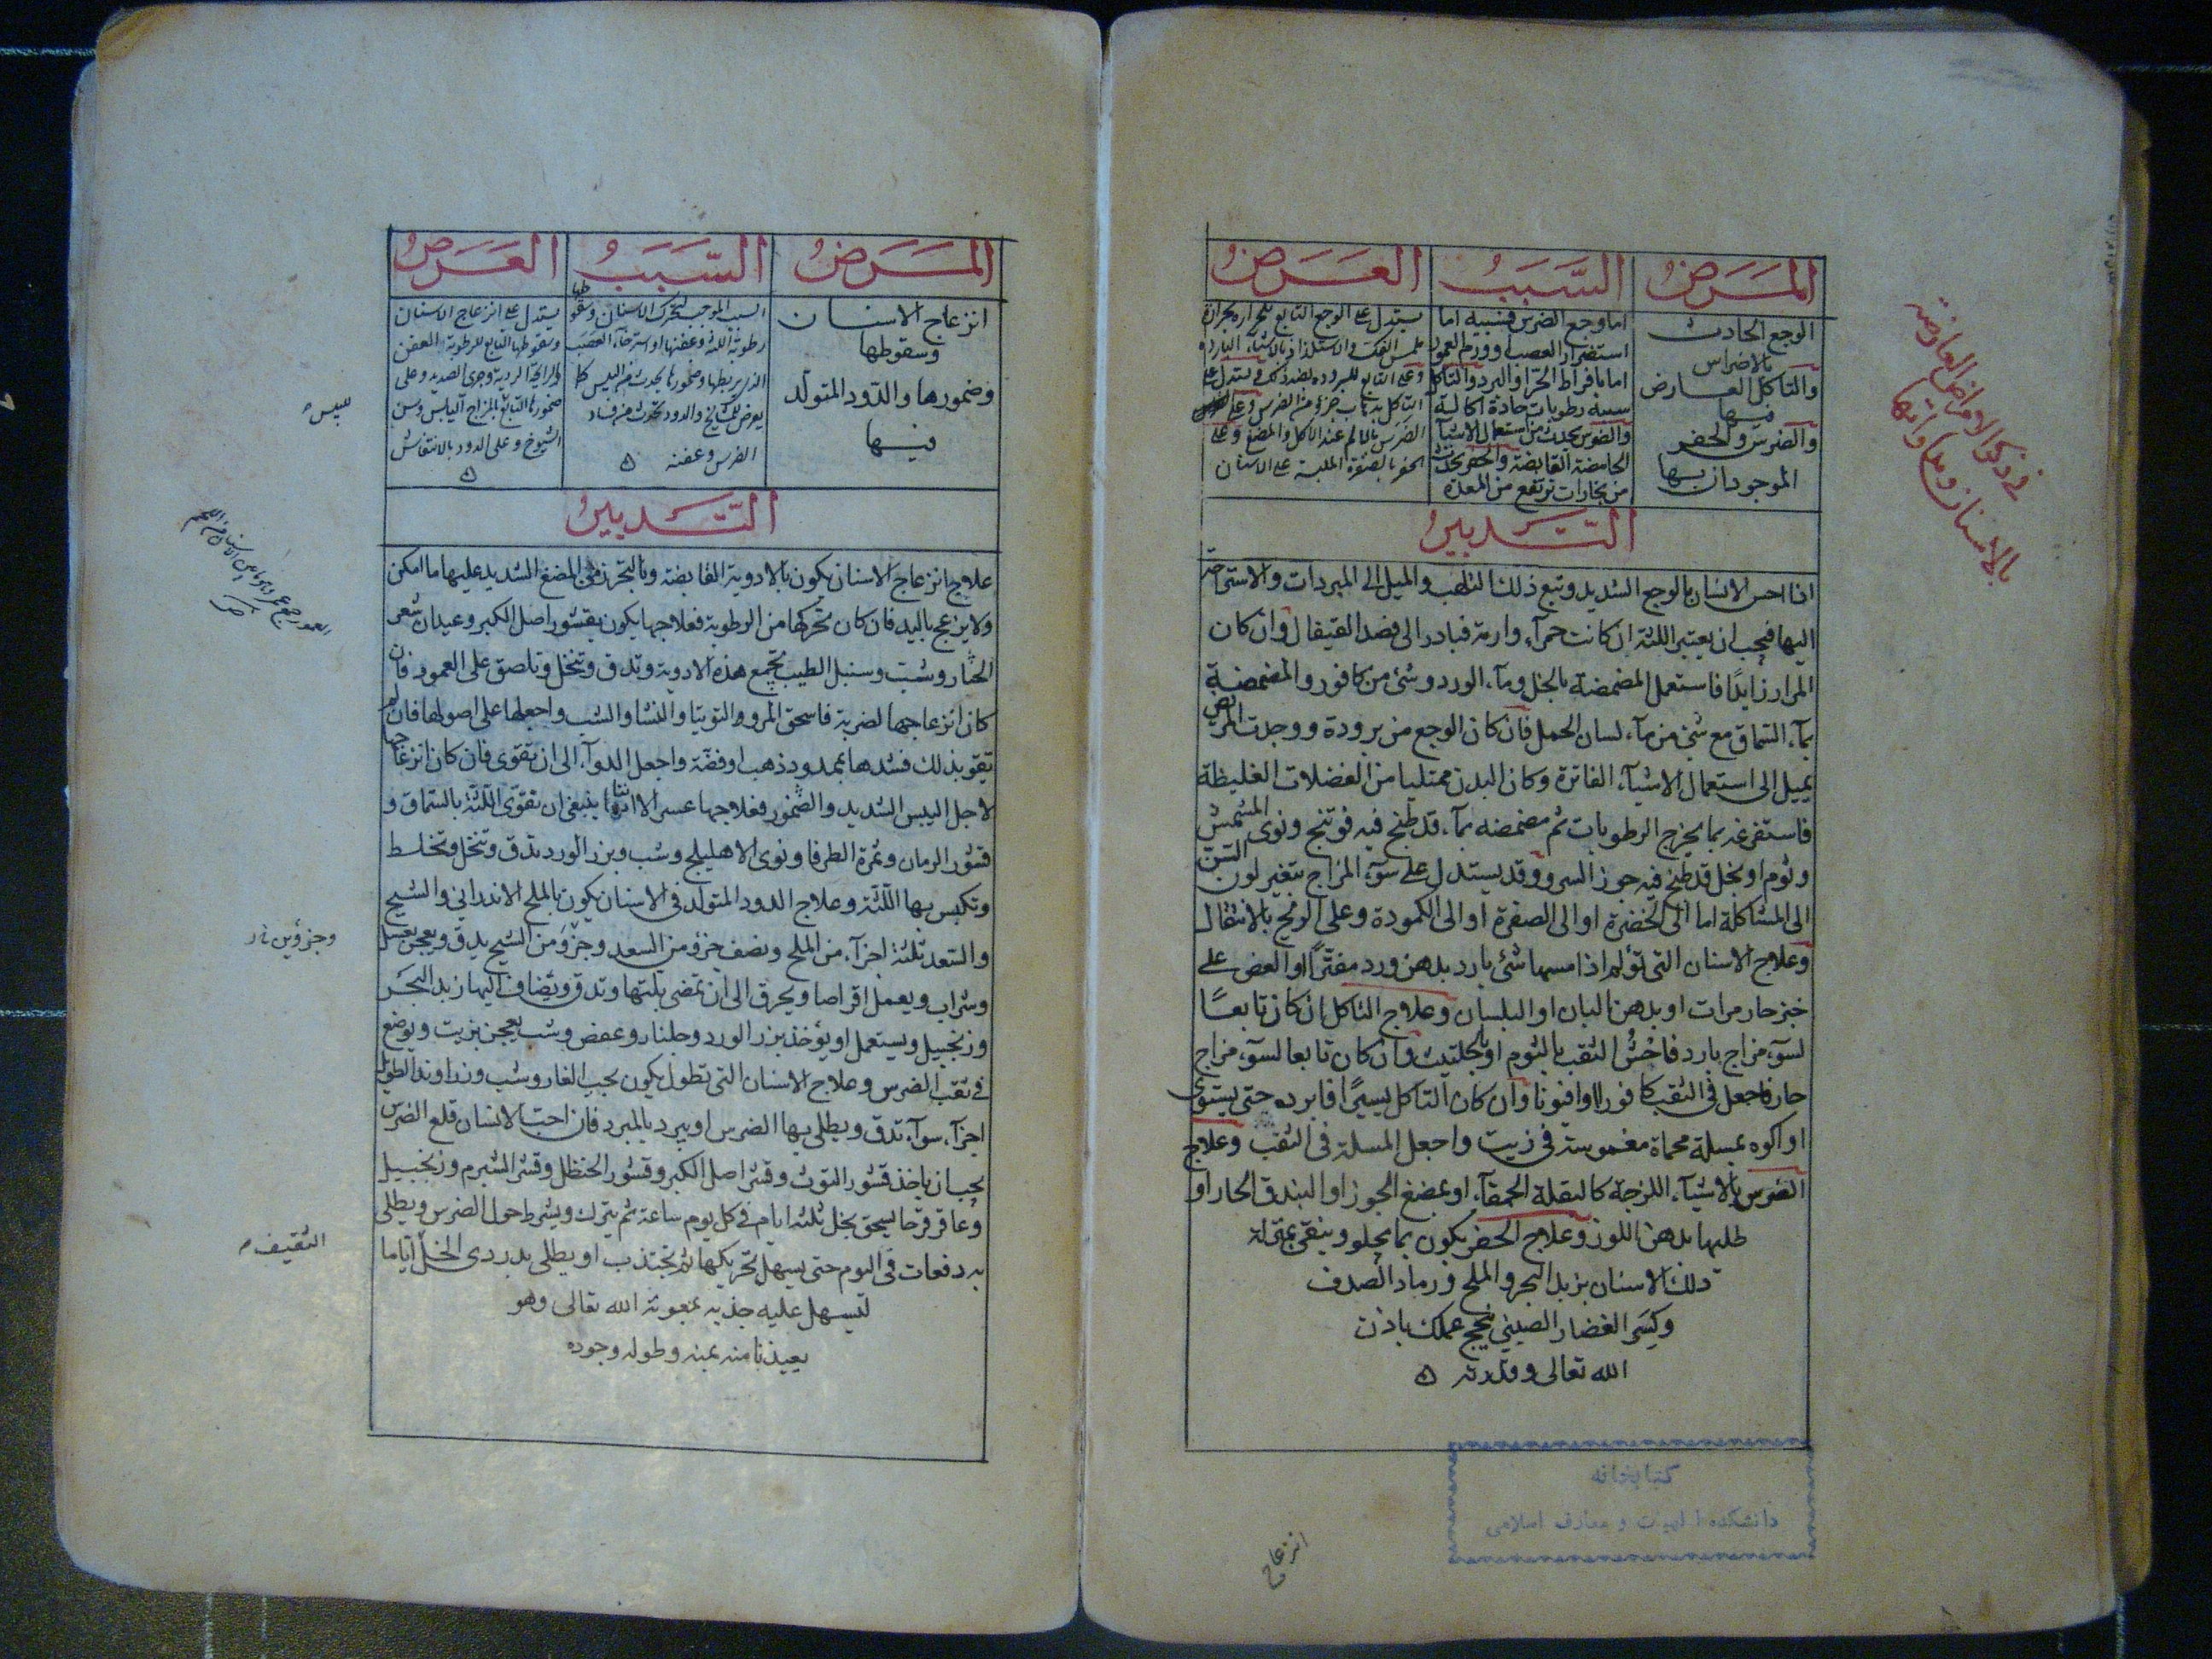 في ذكر الامراض العارضة
بالاسنان ومداواتها
المَرَضُ
السَّبَبُ
العَرَضُ
الوجع الحادث
بالاضراس
والتاكل العارض
فيها
والضرس والحفر
الموجودان بها
اما وجع الضرس فسببه اما
استضرار العصب وورم العمور
اما بافراط الحر او البرد والتاكل
سببه رطوبات حادة اكالة
والضرس يحدث من استعمال الاشيآ
الحامضة القابضة والحفر يحدث
من بخارات ترتفع من المعدة
يستدل على الوجع التابع للحرارة بحرارة
ملمس الفك والاستلذاذ بالاشيآء الباردة
وعلى التابع للبرودة بضد ذلك ويستدل على
التاكل بذهاب جزؤ من الضرس وعلى
الضرس بالالم عند الاكل والمضغ وعلى
الحفر بالصفرة الملبسة على الاسنان
التَّدبيرُ
اذا احس الانسان بالوجع الشديد وتبع ذلك التلهب والميل الى المبردات والاستراحة
اليها فيجب ان يعتبر اللثة ان كانت حمرآء وارمة فبادر الى فصد القيفال وان كان
المرار زايدًا فاستعمل المضمضة بالخل ومآء الورد وشئ من كافور والمضمضة
بمآء السماق مع شئ من مآء لسان الحمل فان كان الوجع من برودة ووجدت المريض
يميل الى استعمال الاشيآء الفاترة وكان البدن ممتليا من الفضلات الغليظة
فاستفرغه بما يخرج الرطوبات ثم مضمضه بمآء قد طبخ فيه فوتنج ونوى المشمش
وثوم او بخل قد طبخ فيه جوز السرو وقد يستدل على سوء المزاج بتغير لون السن
الى المشاكلة اما الى الخضرة او الى الصفرة او الى الكمودة وعلى الريح بالانتقال
وعلاج الاسنان التى تؤلم اذا مسها شئ بارد بدهن ورد مفترًا او العض على
خبز حار مرات او بدهن البان او البلسان وعلاج التاكل ان كان تابعًا
لسوء مزاج بارد فاحشُ الثقب بالثوم او بالحلتيت وان كان تابعا لسوء مزاج
حار فاجعل فى الثقب كافورا او افيونا وان كان التاكل يسيرًا فابرده حتى يستوى
او اكوه بمسلة محماة مغموسة فى زيت واجعل المسلة فى الثقب وعلاج
الضرس بالاشيآء اللزجة كالبقلة الحمقآء او بمضغ الجوز او البندق الحار او
طليها بدهن اللوز وعلاج الحفر يكون بما يجلو وينقى بمنزلة
دلك الاسنان بزبد البحر والملح ورماد الصدف
وكسَر الغضار الصينى ينجح عملك باذن
الله تعالى وقدرته ۵
كتابخانه
دانشكده الهيات و معارف اسلامى
انزعاج
المَرَضُ
السَّبَبُ
العَرَضُ
انزعاج الاسنان
وسقوطها
وضمورها والدود المتولد
فيها
السبب الموجب لتحرك الاسنان وسقوطها
رطوبة اللثة وعفنها او استرخآء العصب
الذى يربطها وضمورها يحدث من اليبس كما
يعرض للمشايخ والدود يحدث من فساد
الضرس وعفنه ۵
يستدل على انزعاج الاسنان
وسقوطها التابع للرطوبة العفن
والرايحة الردية وجرى الصديد وعلى
ضمورها التابع بالمزاج اليابس وسن
الشيوخ وعلى الدود بالانتفاش
۵
لليبس
التَّدبيرُ
علاج انزعاج الاسنان يكون بالادوية القابضة وبالتحرز من المضغ الشديد عليها ما امكن
ولا يزعج باليد فان كان تحركها من الرطوبة فعلاجها يكون بقشور اصل الكبر وعيدان شعر
الخيار وشبت وسنبل الطيب تجمع هذه الادوية وتدق وتنخل وتلصق على العمور فان
كان انزعاجها لضربة فاسحق المر والتوتيا والنشا والشب واجعلها على اصولها فان لم
تقو بذلك فشدها بمدود ذهب او فضة واجعل الدوآء الى ان تقوى فان كان انزعاجها
لاجل اليبس الشديد والضمور فعلاجها عسر الا اننا ينبغى ان تقوى اللثة بالسماق و
قشور الرمان وثمرة الطرفا ونوى الاهليلج وشب وبزر الورد تدق وتنخل وتخلط
وتكبس بها اللثة وعلاج الدود المتولد فى الاسنان يكون بالملح الاندرانى والشيح
والسعد ثلثة اجزآء من الملح ونصف جزؤ من السعد وجزؤ من الشيح يدق ويعجن بعسل
وجزؤين
وشراب ويعمل اقراصا ويحرق الى ان تمضى ثلثها وتدق ويضاف اليها زبد البحر
وزنجبيل ويستعمل او يؤخذ بزر الورد وجلنار وعفص وشب يعجن بزيت ويوضع
فى ثقب الضرس وعلاج الاسنان التى تطول يكون بحب الغار وشب وزراوند الطويل
اجزآء سوآء تدق ويطلى بها الضرس او يبرد بالمبرد فان احب الانسان قلع الضرس
يجب ان ياخذ قشور التوث وقشر اصل الكبر وقشور الحنظل وقشر الشبرم وزنجبيل
وعاقرقرحا يسحق بخل ثلثة ايام فى كل يوم ساعة ثم يترك ويشرط حول الضرس ويطلى
به دفعات فى اليوم حتى يسهل تحريكها ثم تجتذب او يطلى بدردى الخل اياما
ليسهل عليه جذبه بمعونة الله تعالى وهو
يعيذنا منه بمنه وطوله وجوده
الثقيف